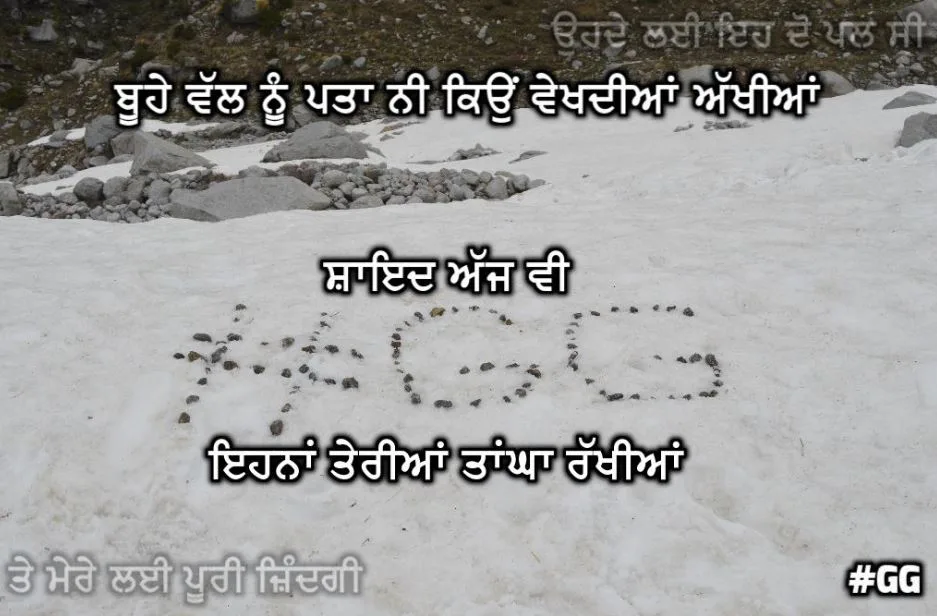 ਓਰਦੇ ਲਈ ਇਹ ਦੋ ਪਲ ਸੀ
ਬੂਹੇ ਵੱਲ ਨੂੰ ਪਤਾ ਨੀ ਕਿਉਂ ਵੇਖਦੀਆਂ ਅੱਖੀਆਂ
ਸ਼ਾਇਦ ਅੱਜ ਵੀ
#GG
ਇਹਨਾਂ ਤੇਰੀਆਂ ਤਾਂਘਾ ਰੱਖੀਆਂ
ਤੇ ਮੇਰੇ ਲਈ ਪੂਰੀ ਜ਼ਿੰਦਗੀ
#GG